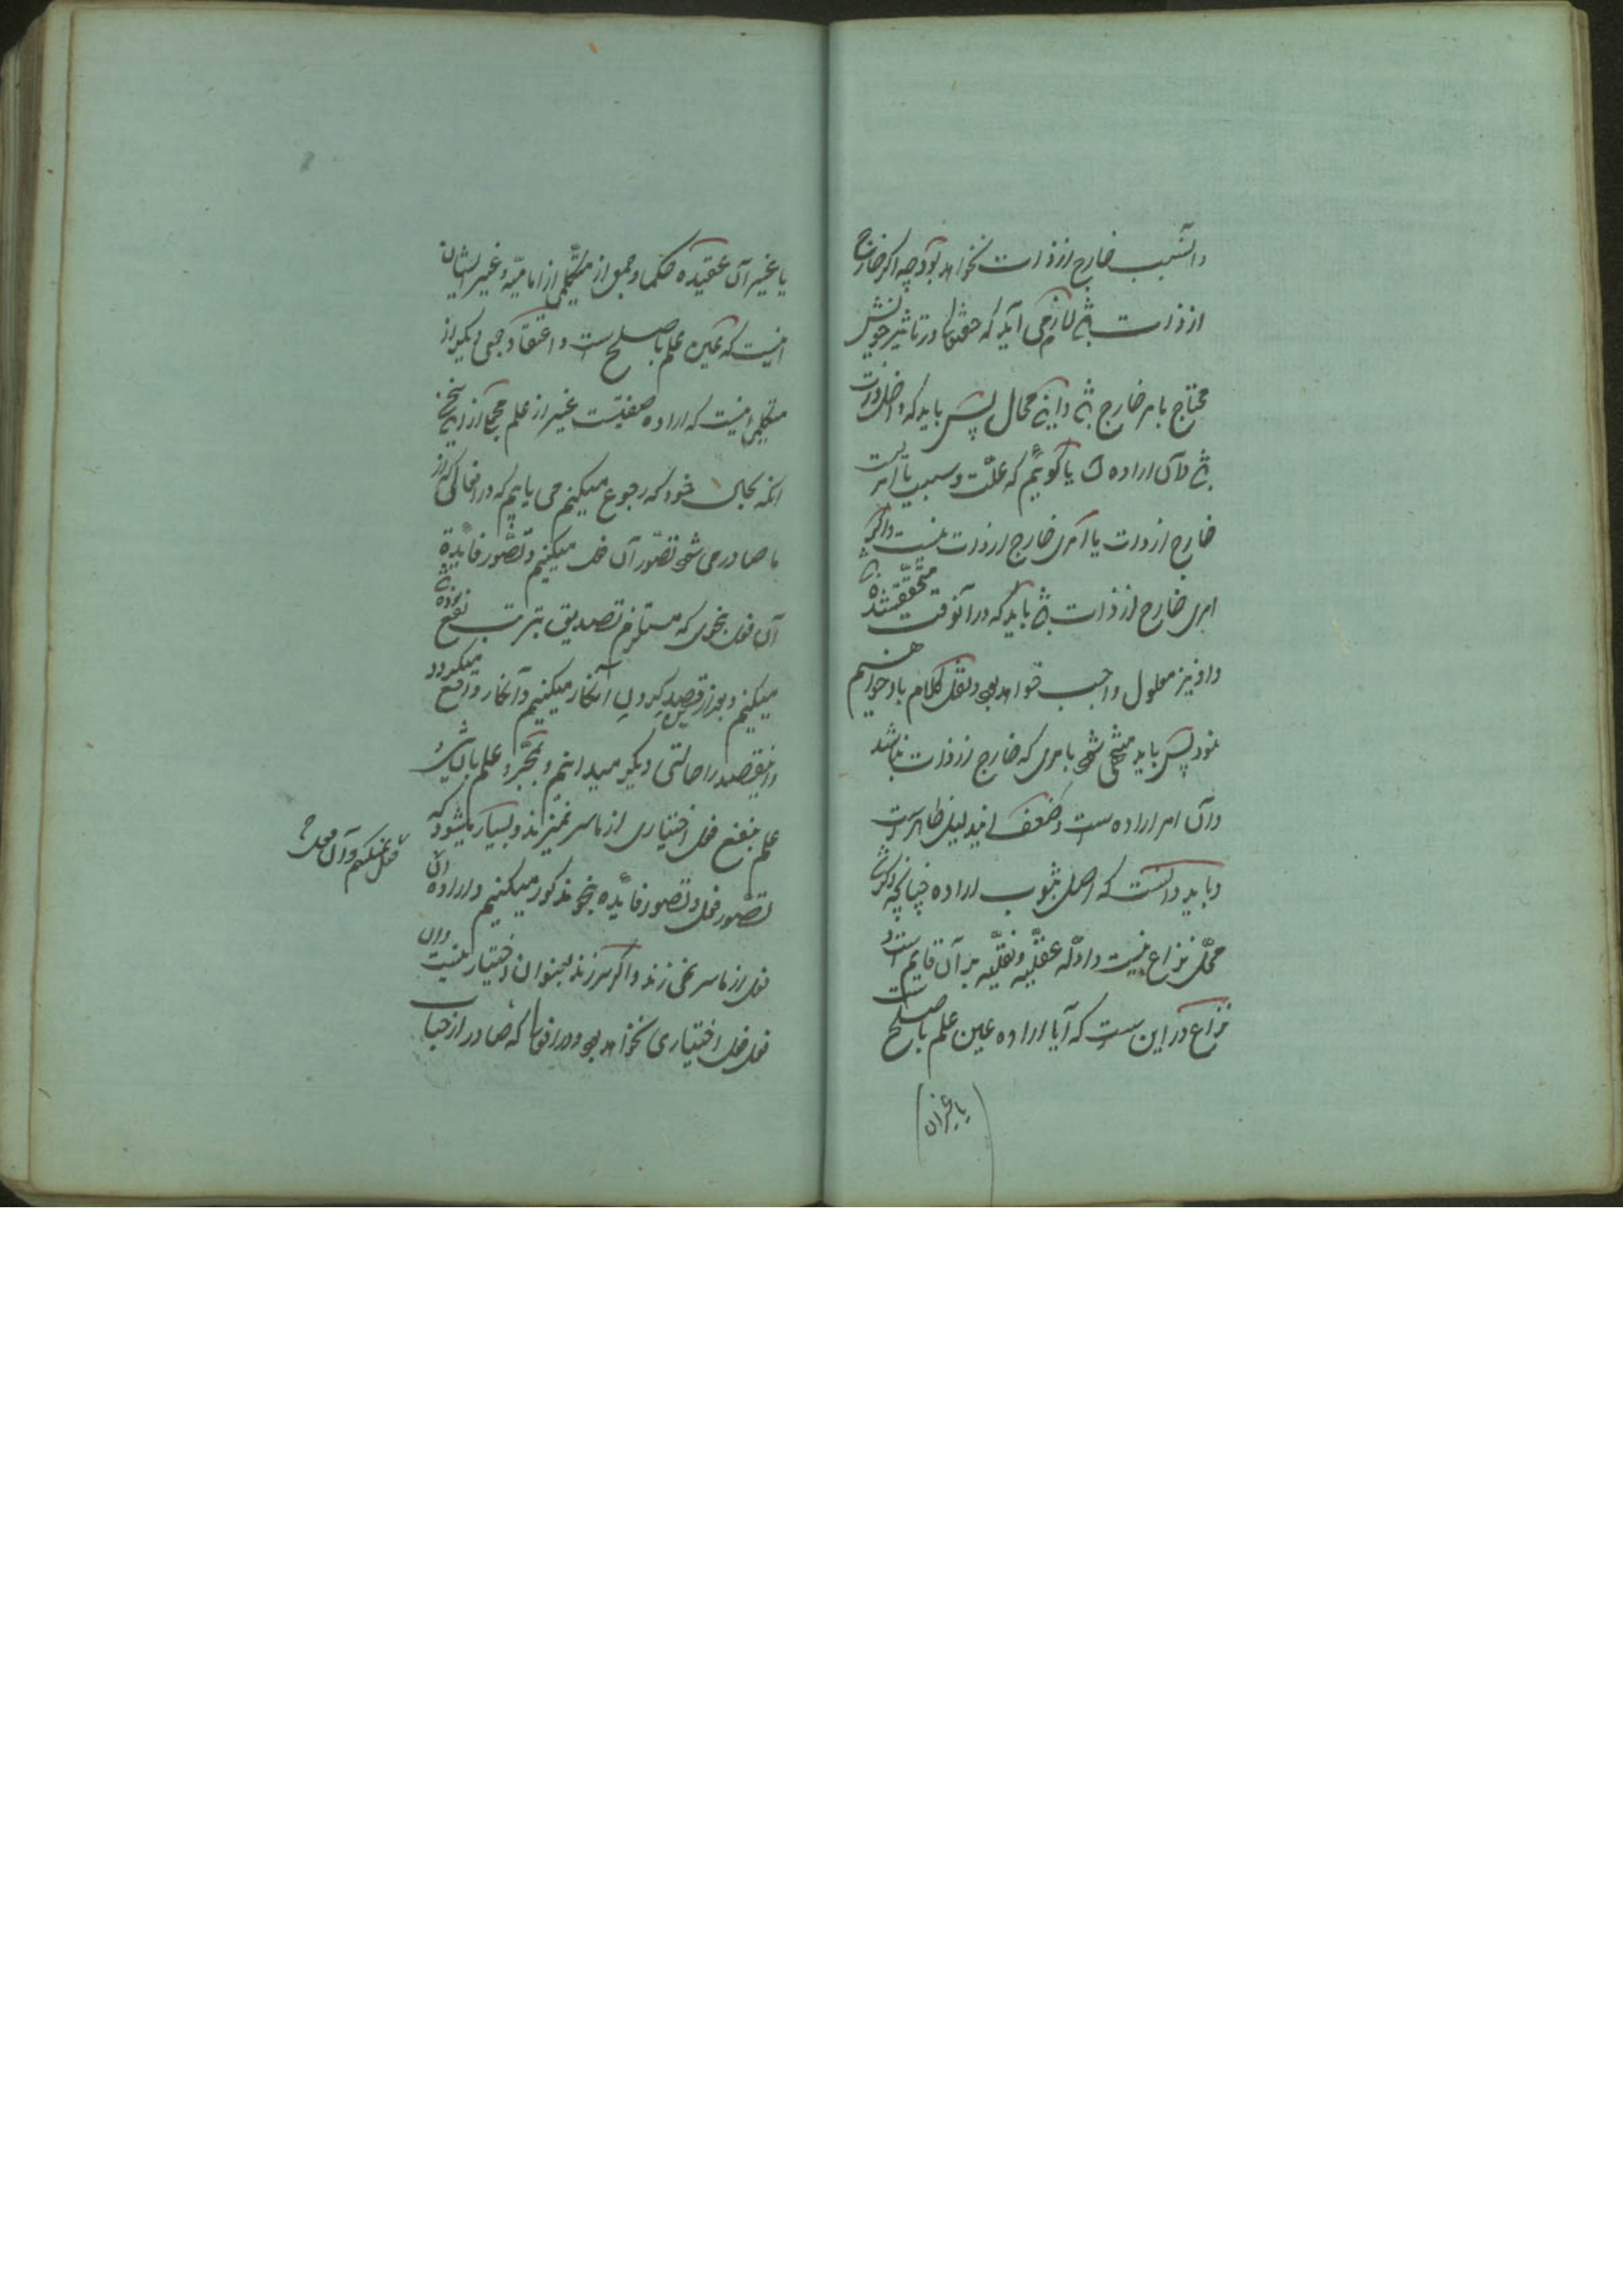 و آن سبب خارج از ذات نخواهد بود چه اگر خارج
از ذات باشد لازم می آید که حقتعالی در تاثیر خویش
محتاج بامر خارج باشد و این محال پس باید که داخل ذات
باشد و آن اراده یا گوئیم که علت و سبب یا امریست
خارج از ذات یا امری خارج از ذات نیست و اگر
امری خارج از ذات باشد باید که در آنوقت متحقق شده باشد
و او نیز معلول واجب خواهد بود و نقل کلام باو خواهیم
نمود پس باید منتهی شود بامری که خارج از ذات نباشد
و آن امر اراده است و ضعف ایندلیل ظاهر است
و باید دانست که اصل ثبوت اراده چنانچه ذکر شد
محل نزاع نیست و ادله عقلیه و نقلیه بر آن قایم است و
نزاع در این است که آیا اراده عین علم باصلح است
یا غیر آن
یا غیر آن عقیده حکما و جمعی از متکلمین از امامیه و غیر ایشان
اینست که عین علم باصلح است و اعتقاد جمعی دیگر از
متکلمین اینست که اراده صفتیست غیر از علم
آنکه بحال خود که رجوع میکنیم می یابیم که در افعالی که از
ما صادر می شود تصور آن فعل میکنیم و تصور فایده
آن فعل بنحوی که مستلزم تصدیق بترتب نفع بوده باشد
میکنیم و بعد از قصد کردن آنکار میکنیم و آنکار واقع میگردد
و اینقصد را حالتی دیگر میدانیم و بمجرد علم بآن شیء و
علم بنفع فعل اختیاری از ما سر نمیزند و بسیار میشود که
تصور فعل و تصور فایده بنحو مذکور میکنیم و اراده آن
فعل نمیکنیم و آن فعل
فعل از ما سر نمی زند و اگر سر زند بعنوان اختیار نیست و آن
فعل فعل اختیاری نخواهد بود و در افعال که صادر از جناب